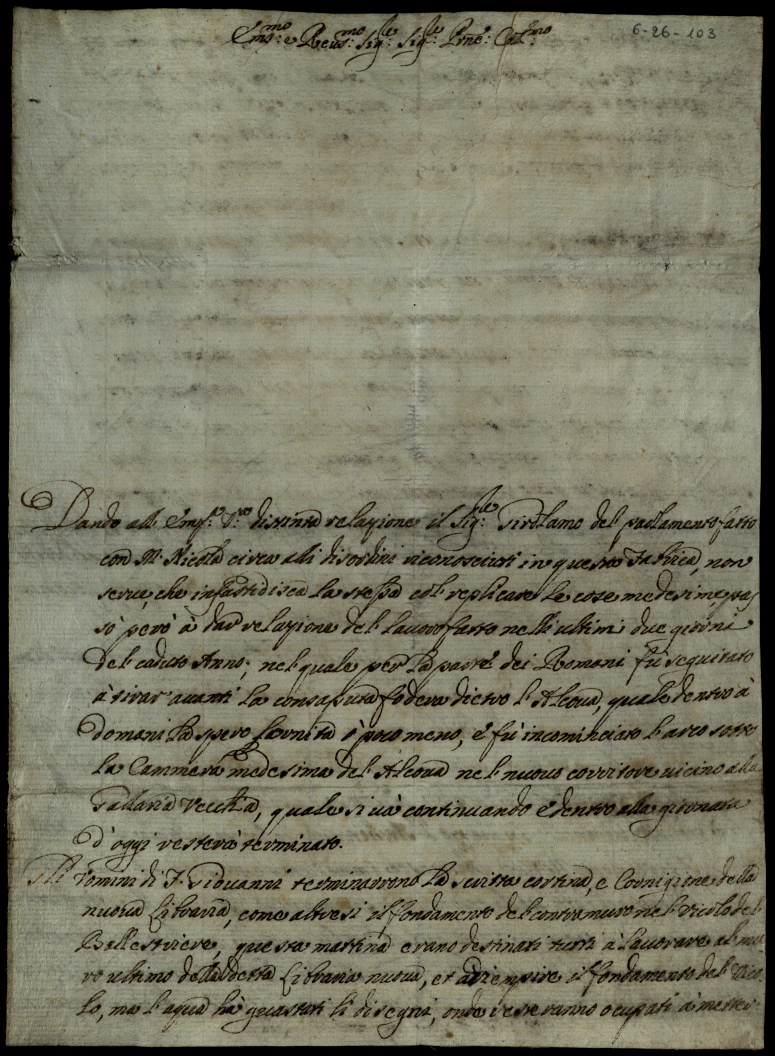 6-26-103
Em.mo e Reu.mo Sig.re Sig.re Prne: Col.mo
Dando all' Em.a V.ra distinta relazione il Sig.re Girolamo del parlamento fatto
con M. Nicola circa alli disordini riconosciuti in questa Fabrica, non
serue, che infastidisca la stessa col replicare le cose medesime, pas
sò però à dar relazione del lauoro fatto nelli ultimi due giorni
del caduto Anno; nel quale per la parte dei Romani fù seguitato
à tirar auanti la consaputa fodera dietro l'Alcoua, quale dentro à
domani la spero fornita ò poco meno, e fù incominciato l'arco sotto
la Cammera medesima del Alcoua nel nuouo corritore uicino alla
Gallaria Vecchia, quale si uà continuando e dentro alla giornata
d'oggi resterà terminato.
Gli Uomini di F. Giouanni terminarono la scritta cortina, e Cornigione della
nuoua Libraria, come altresi il fondamento del contramuro nel Vicolo del
Ballestriere, questa mattina erano destinati tutti à lauorare al mu
ro ultimo della detta Libraria nuoua, et adriempire il fondamento del Vico
lo, ma l'aqua hà guastati li disegni, onde resteranno ocupati à metter